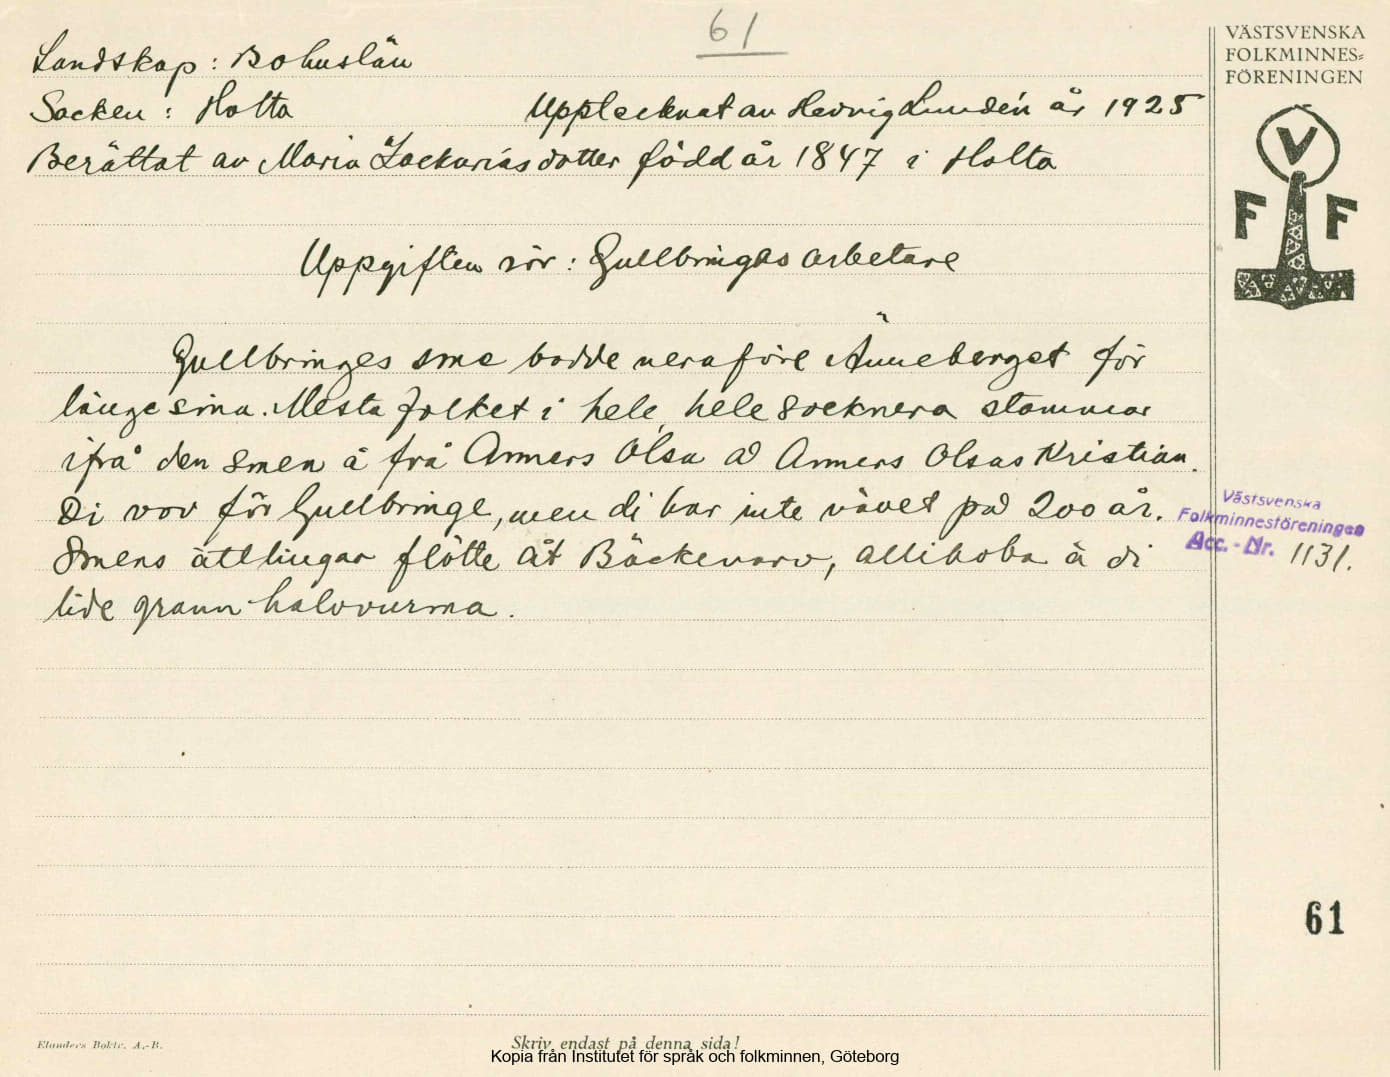 61
VÄSTSVENSKA
FOLKMINNES=
FÖRENINGEN
V
F F
Landskap: Bohuslän
Socken: Holta Upptecknat av Hedvig Lundén år 1925
Berättat av Maria Zackariasdotter född år 1847 i Holta
Uppgiften rör: Gullbringes arbetare
Gullbringes sme bodde neraföre Änneberget för
länge sina. Mesta folket i hele, hele socknera stammar
ifrå den smen å frå Anners Olsa å Anners Olsas Kristian.
Di vov för Gullbringe, men di har inte vävet på 200 år.
Smens ättlingar flötte åt Bäckevarv, allihoba å di
lide grann halvvurma.
Västsvenska
Folkminnesföreningen
Acc.-Nr. 1131.
61
Elanders Boktr. A.-B.
Skriv endast på denna sida!
Kopia från Institutet för språk och folkminnen, Göteborg